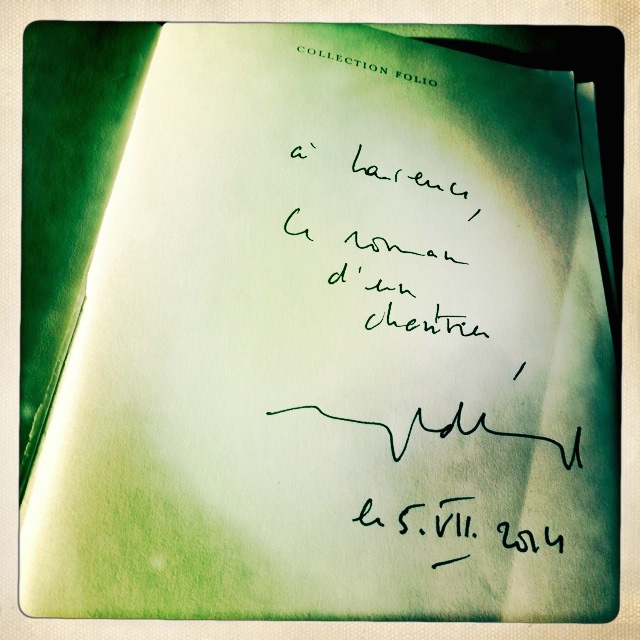 COLLECTION FOLIO
à Laurence,
Ce roman
d'un
chantier,
le 5.VII. 2014